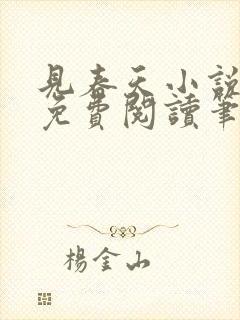 見春天小說
免費閱讀筆
楊金山